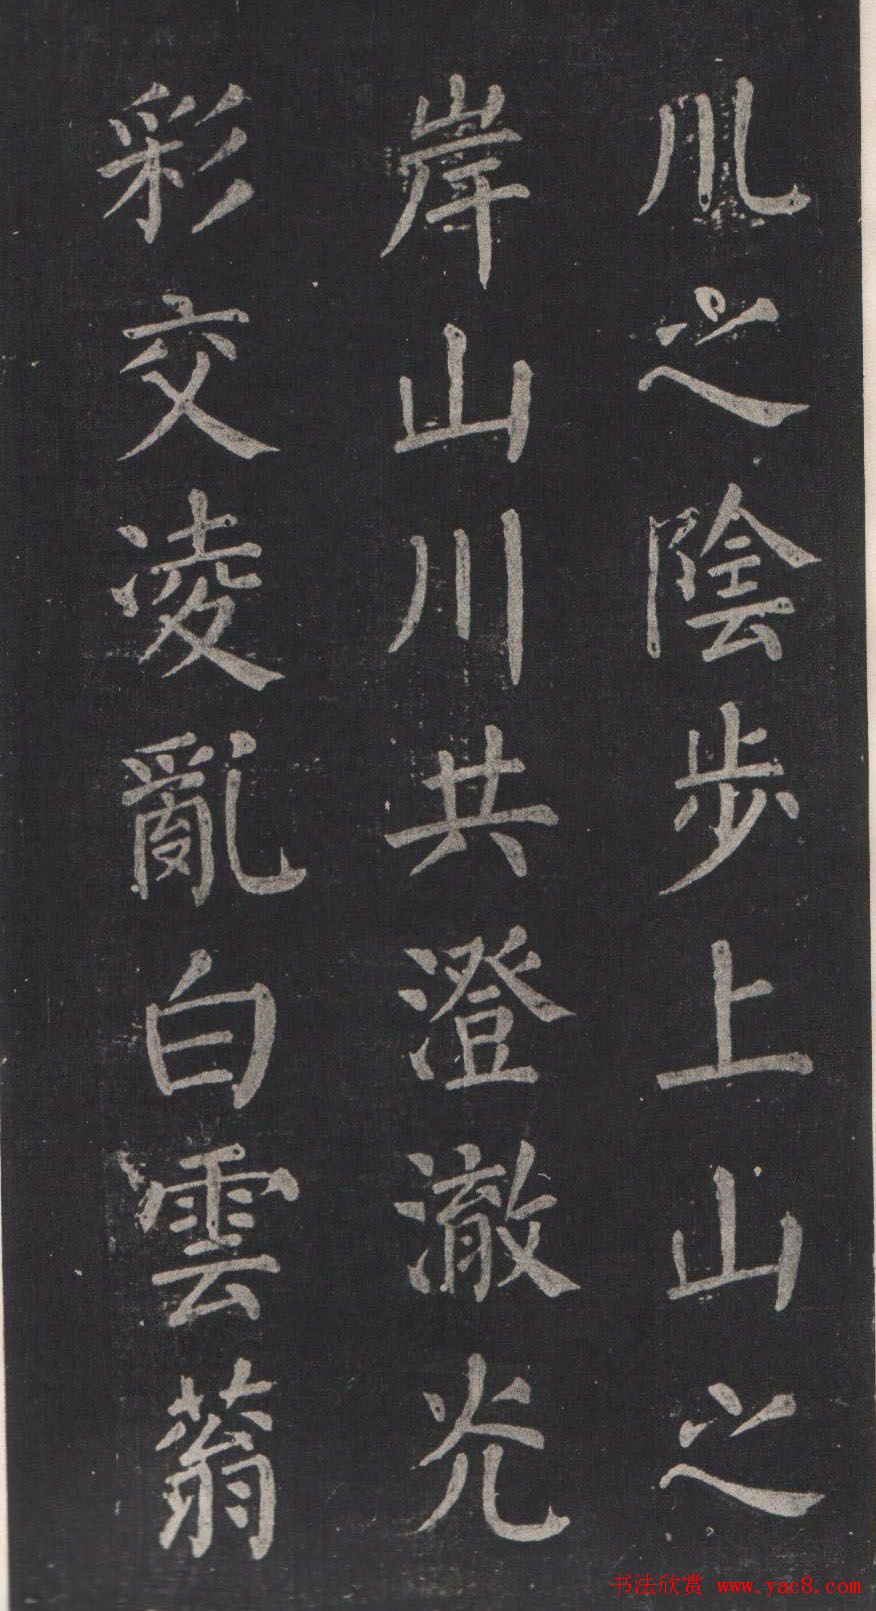 爪之陰步上山之
岸山川共澄澈光
彩交凌亂白雲蓊
书法欣赏 www.yac8.com